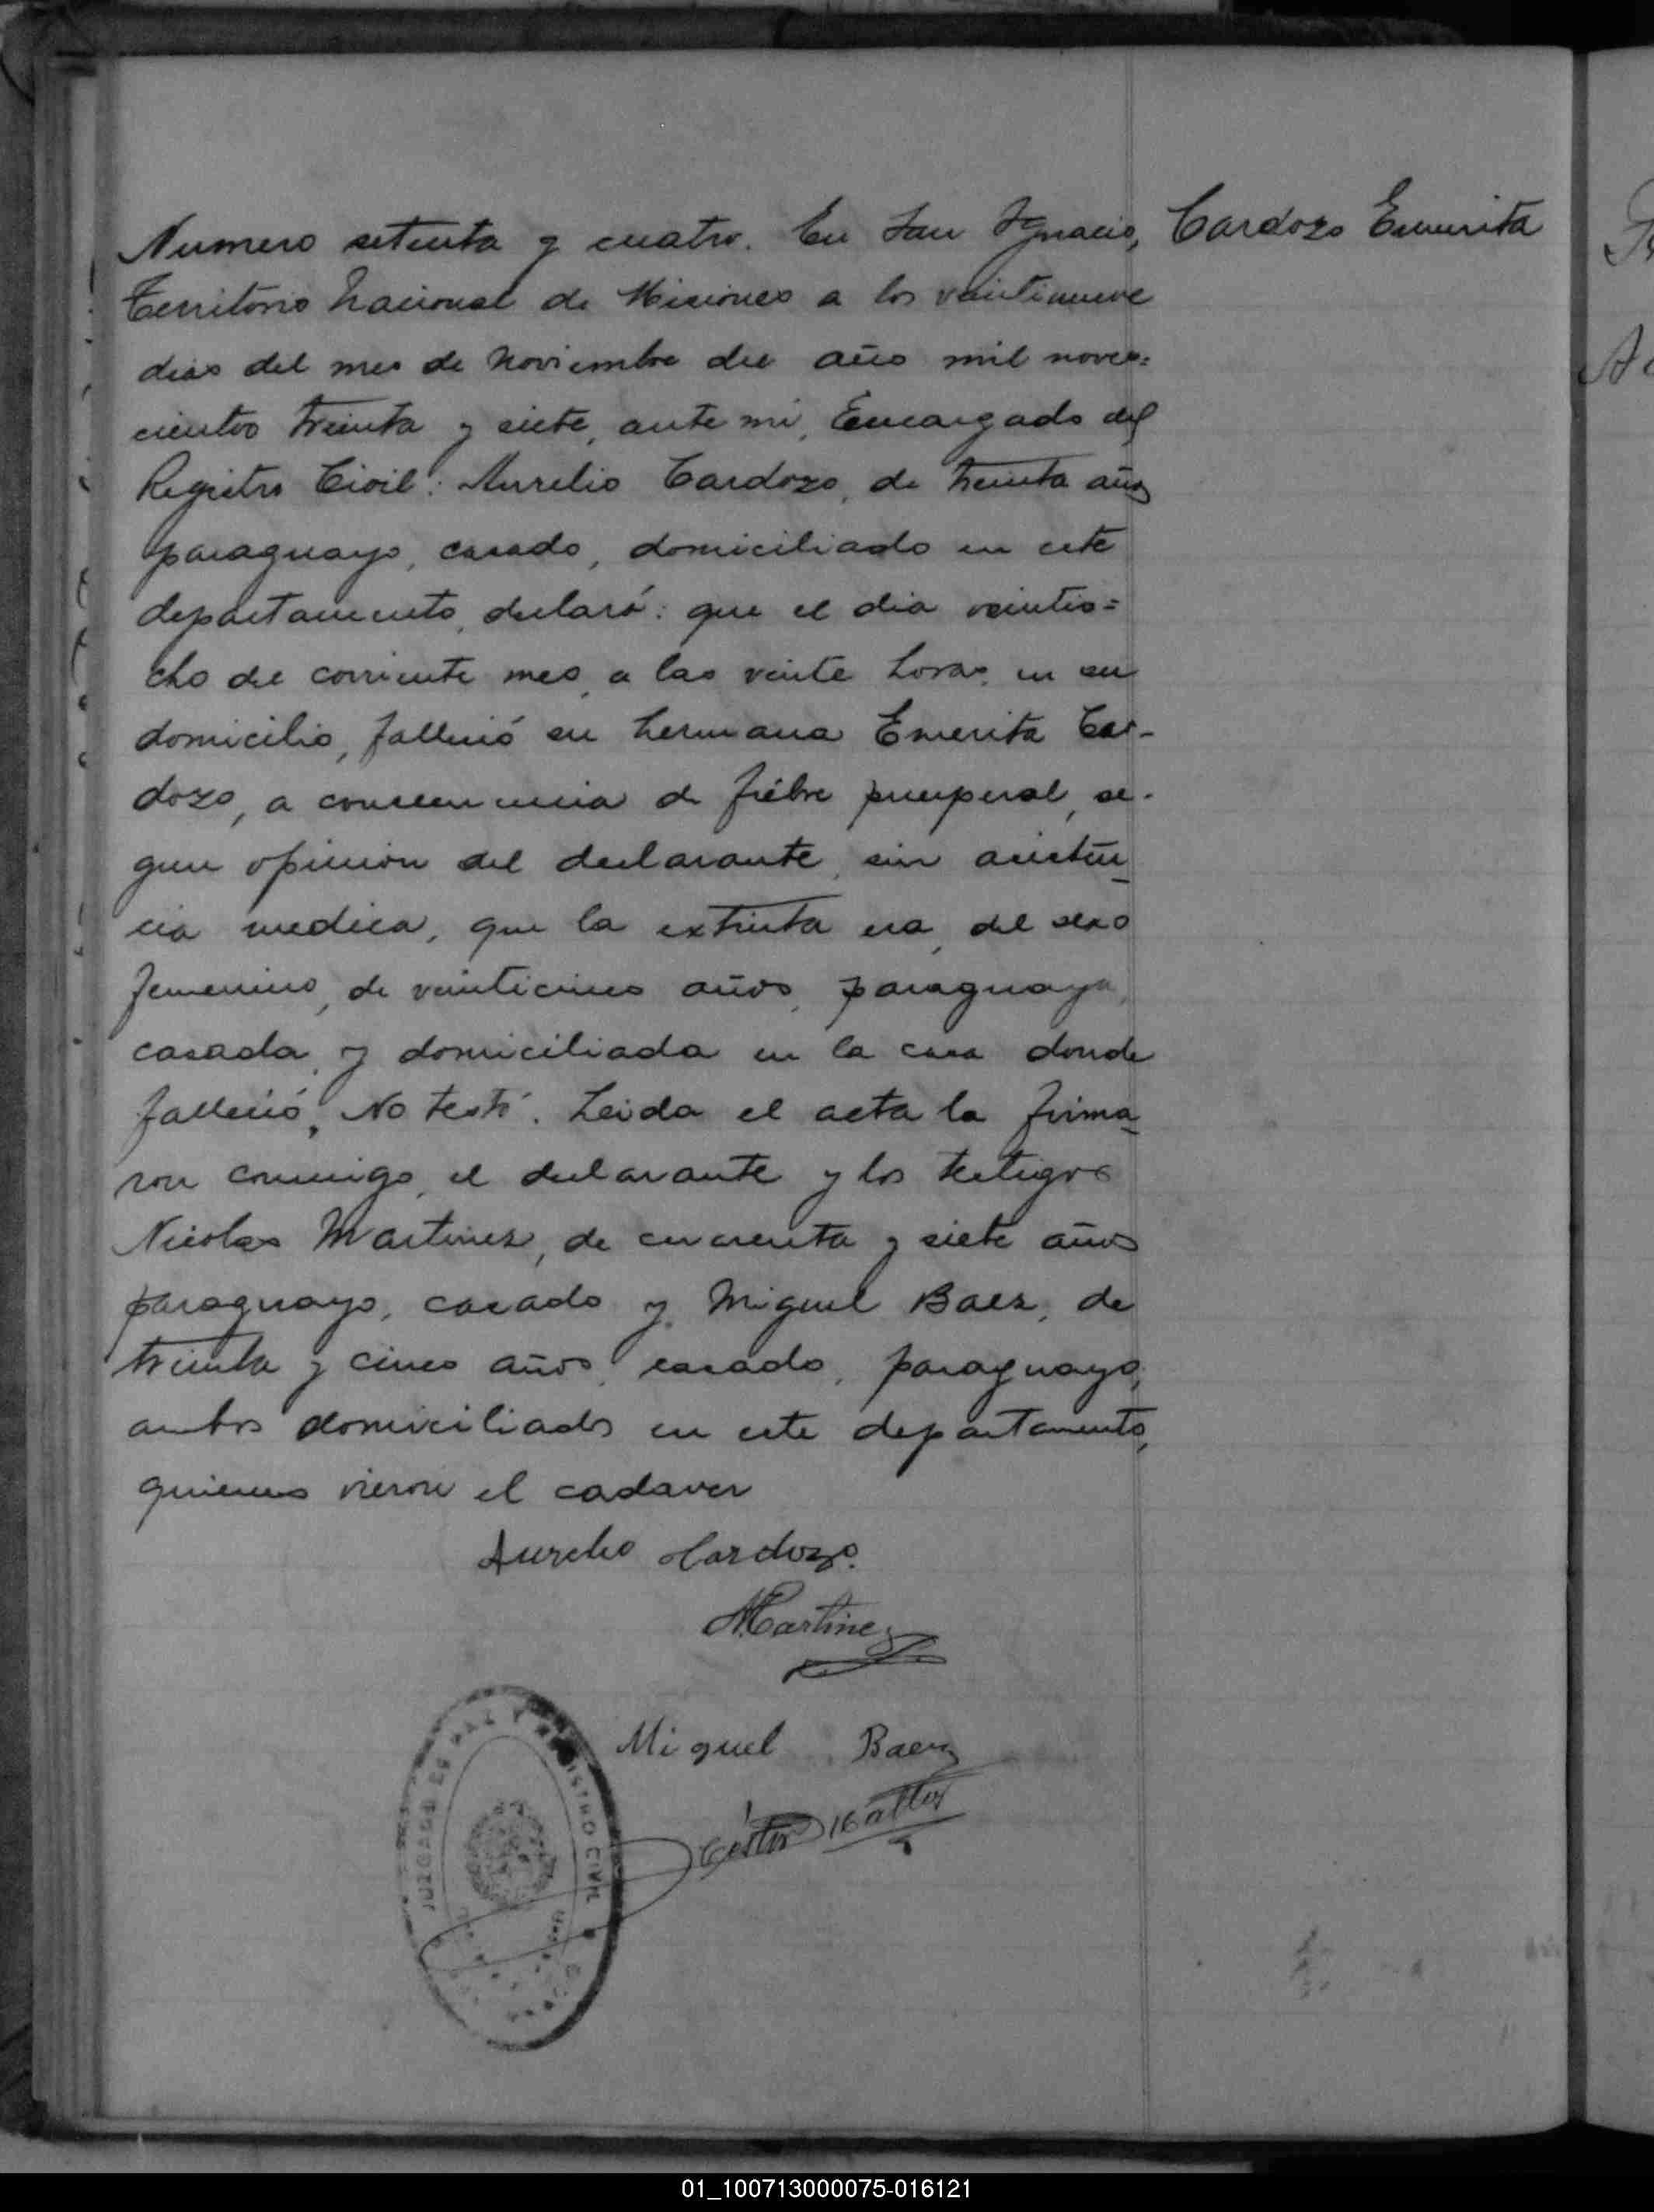 Numero setenta y cuatro. En San Ignacio, Cardozo Emerita
Territorio Nacional de Misiones a los veintinueve
dias del mes de Noviembre del año mil nove=
cientos treinta y siete, ante mi, Encargado del
Registro Civil: Aurelio Cardozo, de treinta años
paraguayo, casado, domiciliado en este
departamento, declaró: que el dia veintio=
cho del corriente mes, a las veinte horas, en su
domicilio, falleció su hermana Emerita Car-
dozo, a consecuencia de fiebre puerperal, se-
gun opinion del declarante, sin asisten
cia medica, que la extinta era, del sexo
femenino, de veinticinco años, paraguaya,
casada, y domiciliada en la casa donde
falleció, No testó. Leida el acta la firma
ron conmigo, el declarante y los testigos
Nicolas Martinez, de cuarenta y siete años
paraguayo, casado y, Miguel Baez, de
treinta y cinco años, casado, paraguayo,
ambos domiciliados en este departamento,
quienes vieron el cadaver
Aurelio Cardozo.
NMartinez
Miguel Baez
JUZGADO DE PAZ Y REGISTRO CIVIL
01_100713000075-016121